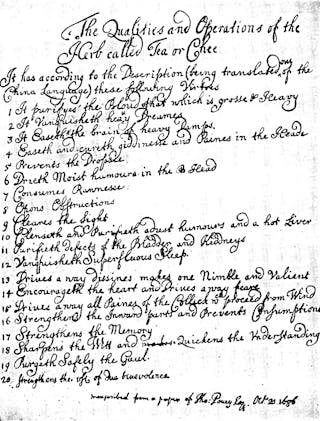 The Qualities and Operations of the
Herb called Tea or Chee
It has according to the Description (being translated out of
China Language) these following Vertues
1 It purifyes the Bloud that which is grosse & Heavy
2 It Vanquisheth heavy Dreames
3 It Easeth the brain of heavy Damps
4 Easeth and cureth giddinesse and Paines in the Heade
5 Prevents the Dropsie
6 Drieth Moist humours in the Head
7 Consumes Rawnesse
8 Opens Obstructions
9 Cleares the Sight
10 Clenseth and Purifieth adust humours and a hot Liver
11 Purifieth defects of the Bladder and Kidneys
12 Vanquisheth Superfluous Sleep
13 Drives away dissines makes one Nimble and Valient
14 Encourageth the heart and Drives away feare
15 Drives away all Paines of the Collick wch proceed from Wind
16 Strengthens the Inward parts and Prevents Consumptions
17 Strengthens the Memory
18 Sharpens the Witt and Quickens the Understanding
19 Purgeth Safely the Gaul
20 Strengthens the use of due benevolence
transcribed from a paper of Tho. Povey Esq. Oct. 20 1686